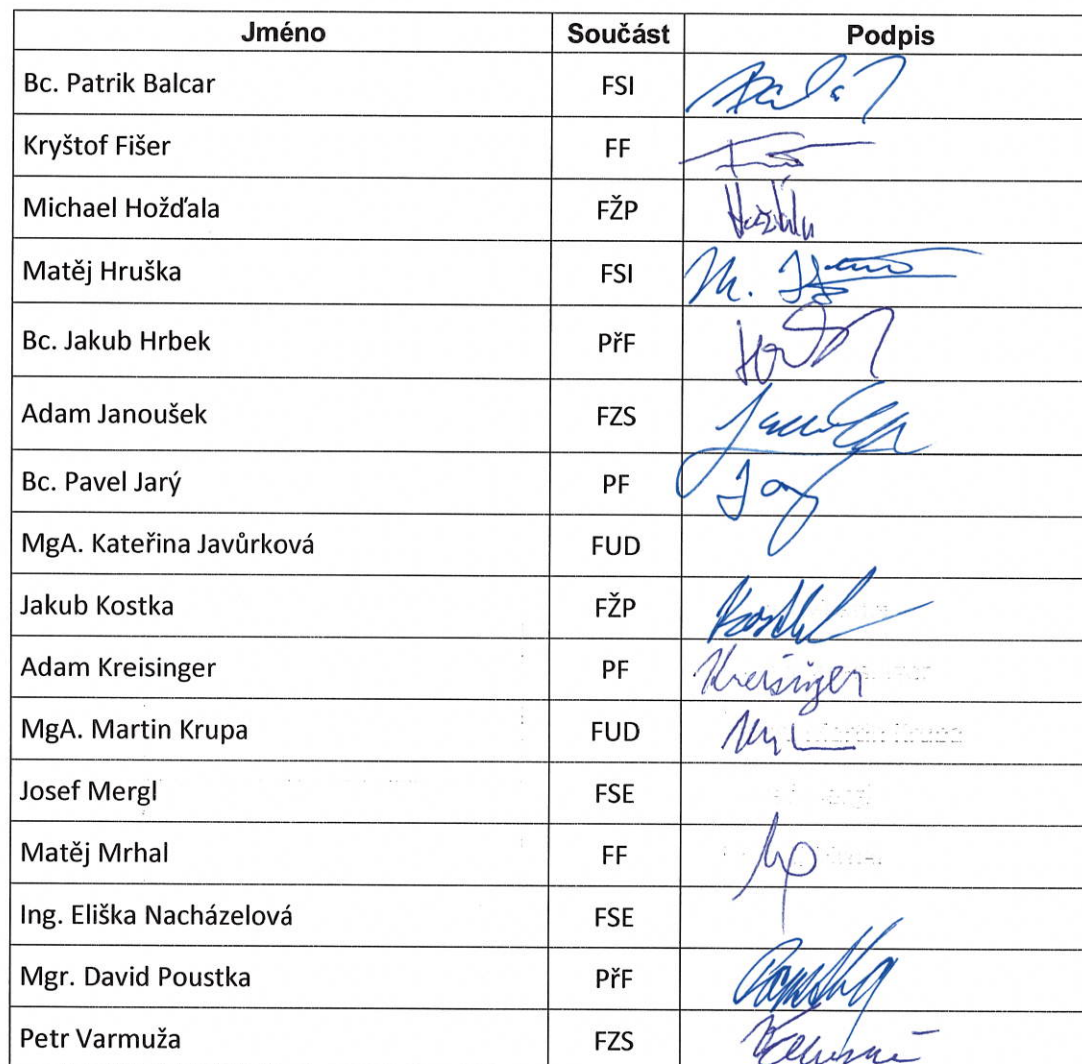 Jméno Součást Podpis
Bc. Patrik Balcar FSI
Kryštof Fišer FF
Michael Hožďala FŽP
Matěj Hruška FSI M.
Bc. Jakub Hrbek PřF
Adam Janoušek FZS
Bc. Pavel Jarý PF
MgA. Kateřina Javůrková FUD
Jakub Kostka FŽP
Adam Kreisinger PF Kreisinger
MgA. Martin Krupa FUD
Josef Mergl FSE
Matěj Mrhal FF
Ing. Eliška Nacházelová FSE
Mgr. David Poustka PřF
Petr Varmuža FZS